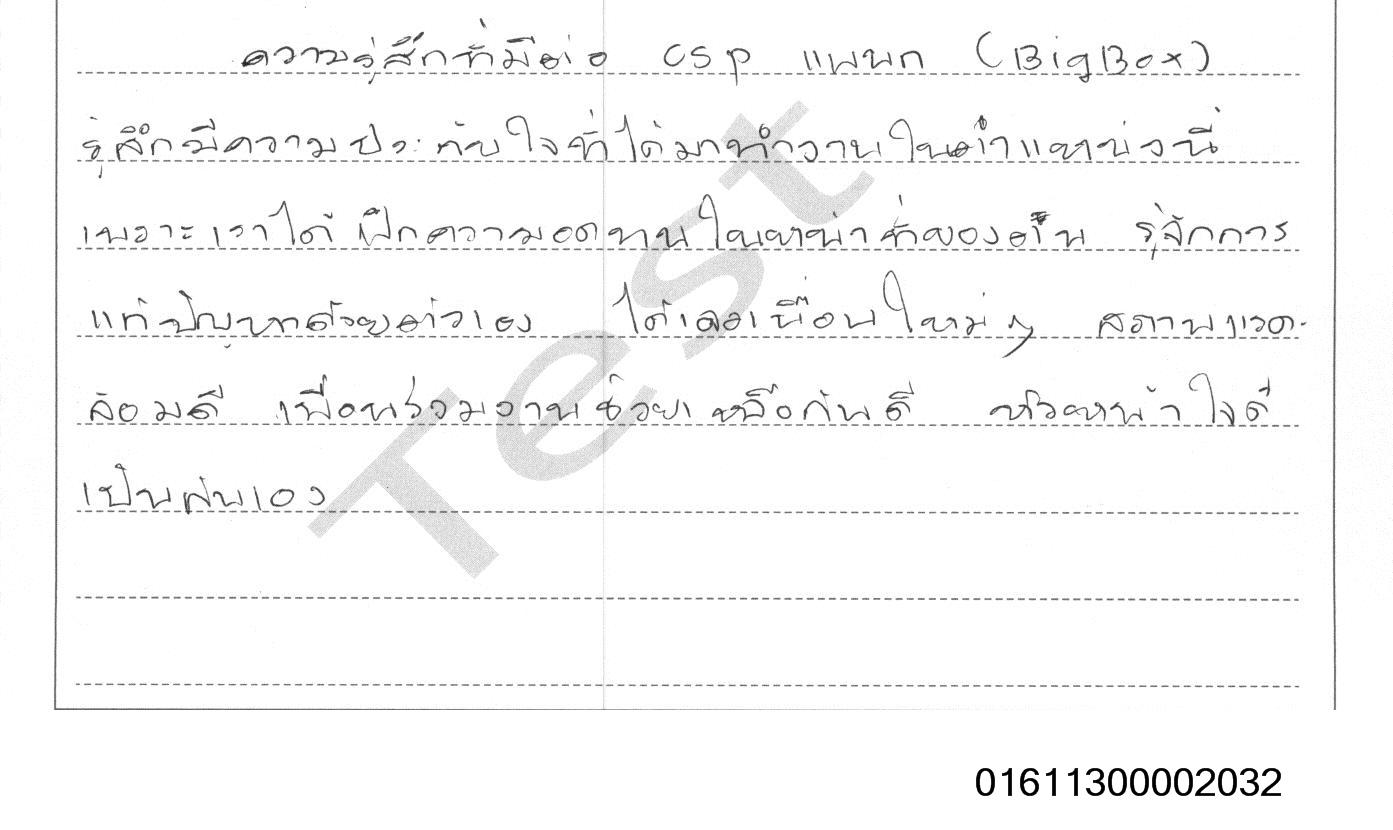 ความรู้สึกที่มีต่อ CSP แพนก (BigBox)
รู้สึกมีความประทับใจที่ได้มาทำงานในตำแหน่งนี้
เพราะเราได้ฝึกความอดทนในหน้าที่ของตน รู้จักการ
แก้ปัญหาด้วยตัวเอง ได้เจอเพื่อนใหม่ๆ สภาพแวด-
ล้อมดี เพื่อนร่วมงานช่วยเหลือกันดี หัวหน้าใจดี
เป็นกันเอง
Test
01611300002032